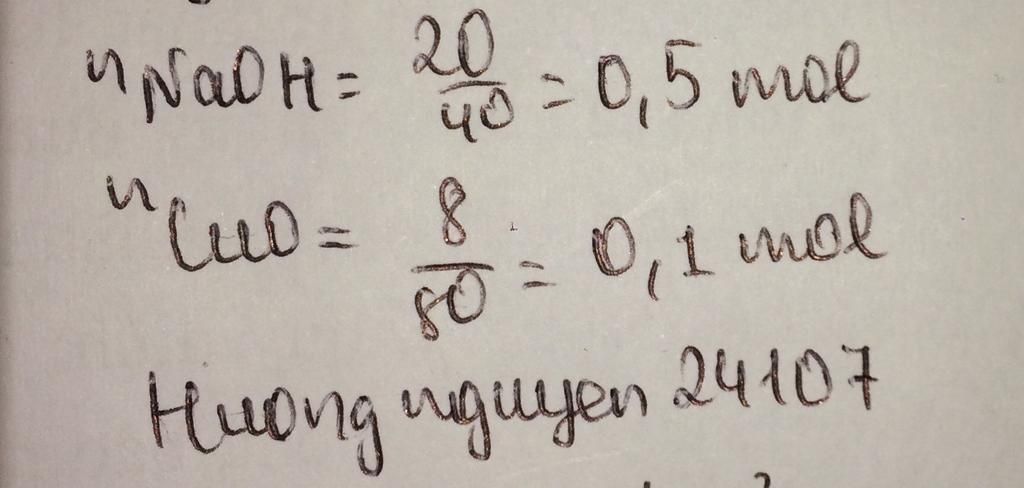 nNaOH = 20/40 = 0,5 mol
nCuO = 8/80 = 0,1 mol
Huongnguyen 24107